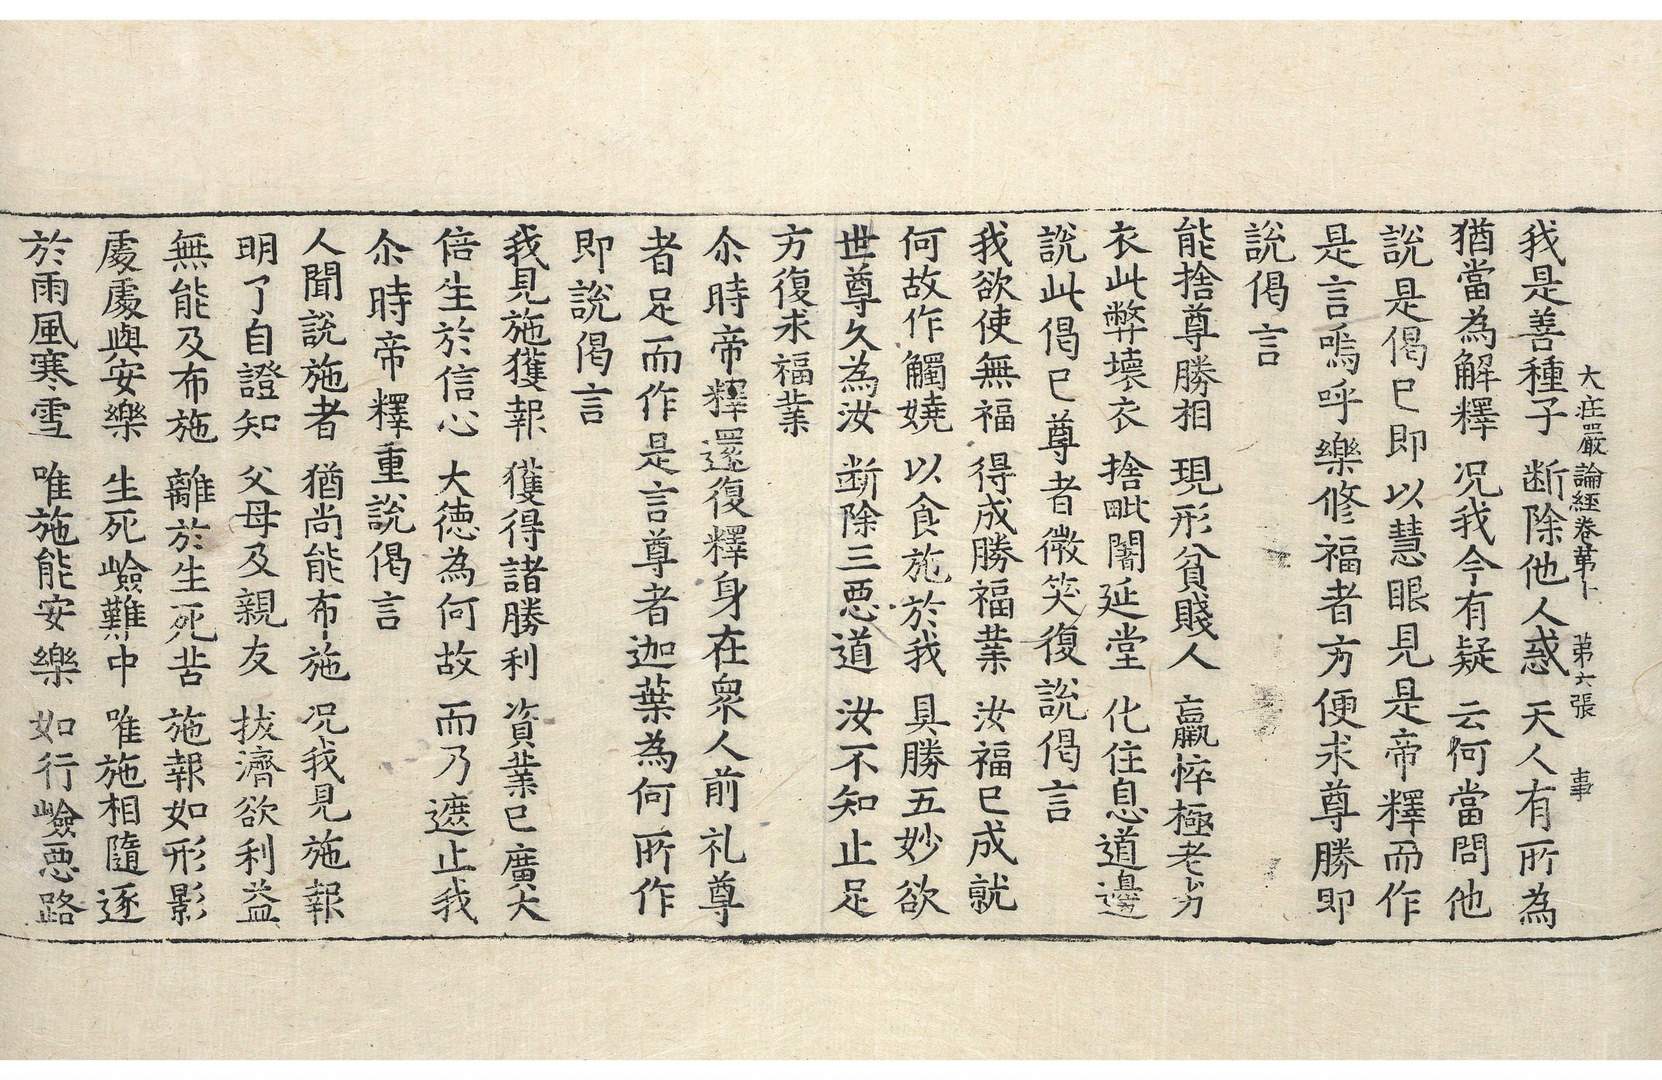 大莊嚴論經卷第十 第六張 事
我是善種子 断除他人惑 天人有所為
猶當為解釋 况我今有疑 云何當問他
說是偈已即以慧眼見是帝釋而作
是言嗚呼樂修福者方便求尊勝即
說偈言
能捨尊勝相 現形貧賤人 羸悴極老劣
衣此弊壞衣 捨毗闍延堂 化住息道邊
說此偈已尊者微笑復說偈言
我欲使無福 得成勝福業 汝福已成就
何故作觸嬈 以食施於我 具勝五妙欲
世尊久為汝 断除三惡道 汝不知止足
方復求福業
尒時帝釋還復釋身在衆人前礼尊
者足而作是言尊者迦葉為何所作
即說偈言
我見施獲報 獲得諸勝利 資業已廣大
倍生於信心 大德為何故 而乃遮止我
尒時帝釋重說偈言
人聞說施者 猶尚能布施 况我見施報
明了自證知 父母及親友 拔濟欲利益
無能及布施 離於生死苦 施報如形影
處處與安樂 生死嶮難中 唯施相隨逐
於雨風寒雪 唯施能安樂 如行嶮惡路